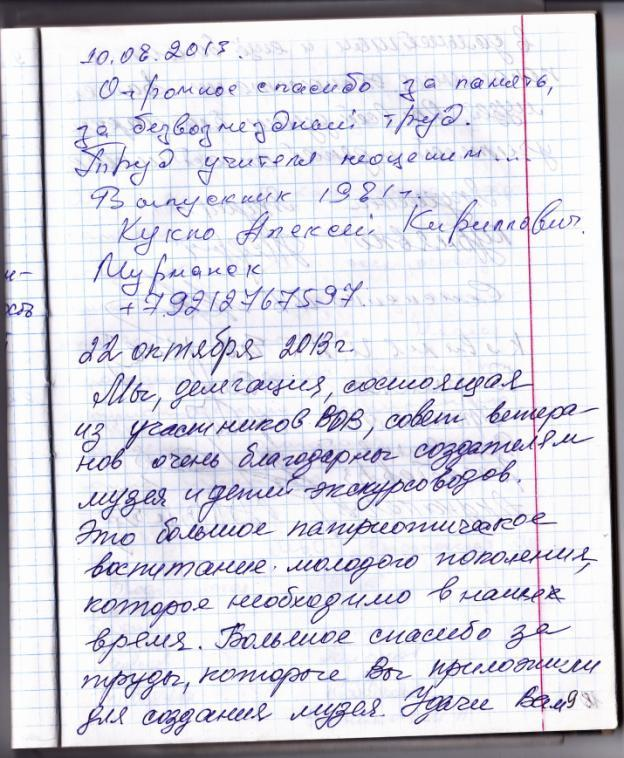 10.08.2013.
Огромное спасибо за память,
за безвозмездный труд.
Труд учителя неоценим...
Выпускник 1981г.
Кукло Алексей Кириллович.
Мурманск
+79212767597.
22 октября 2013г.
Мы, делегация, состоящая
из участников ВОВ, совет ветера-
нов очень благодарны создателям
музея и детей экскурсоводов.
Это большое патриотическое
воспитание молодого поколения,
которое необходимо в наше
время. Большое спасибо за
труды, которые Вы приложили
для создания музея. Удачи Вам